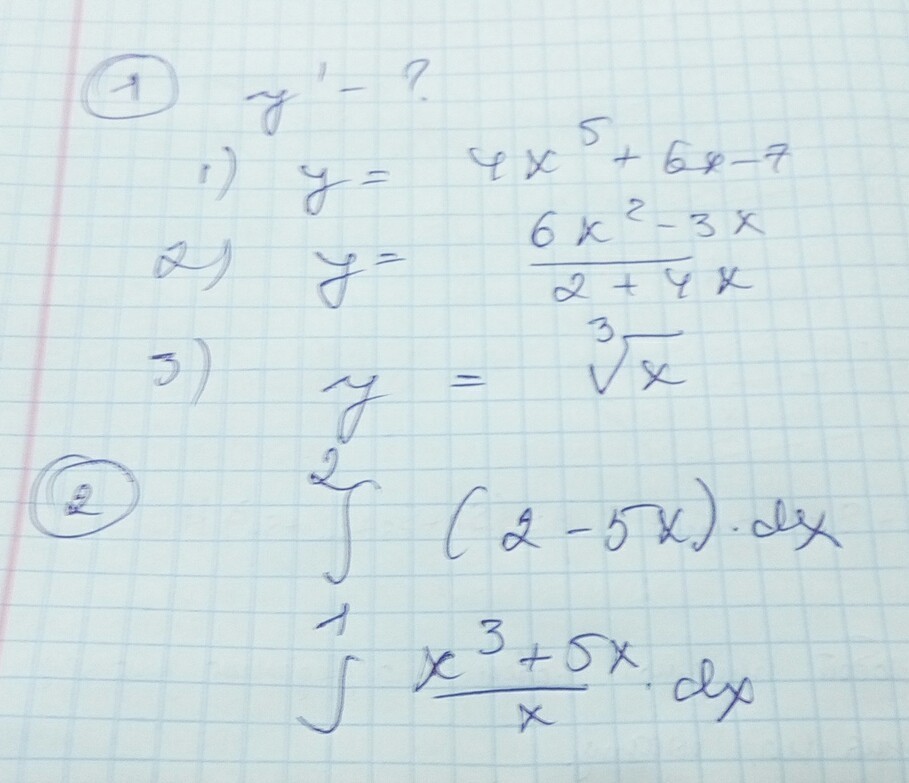 1 y' - ?
1) y = 4x⁵ + 6x - 7
2) y = (6x² - 3x)/(2 + 4x)
3) y = ³√x
2 ∫₁² (2 - 5x) · dx
∫ (x³ + 5x)/x · dx